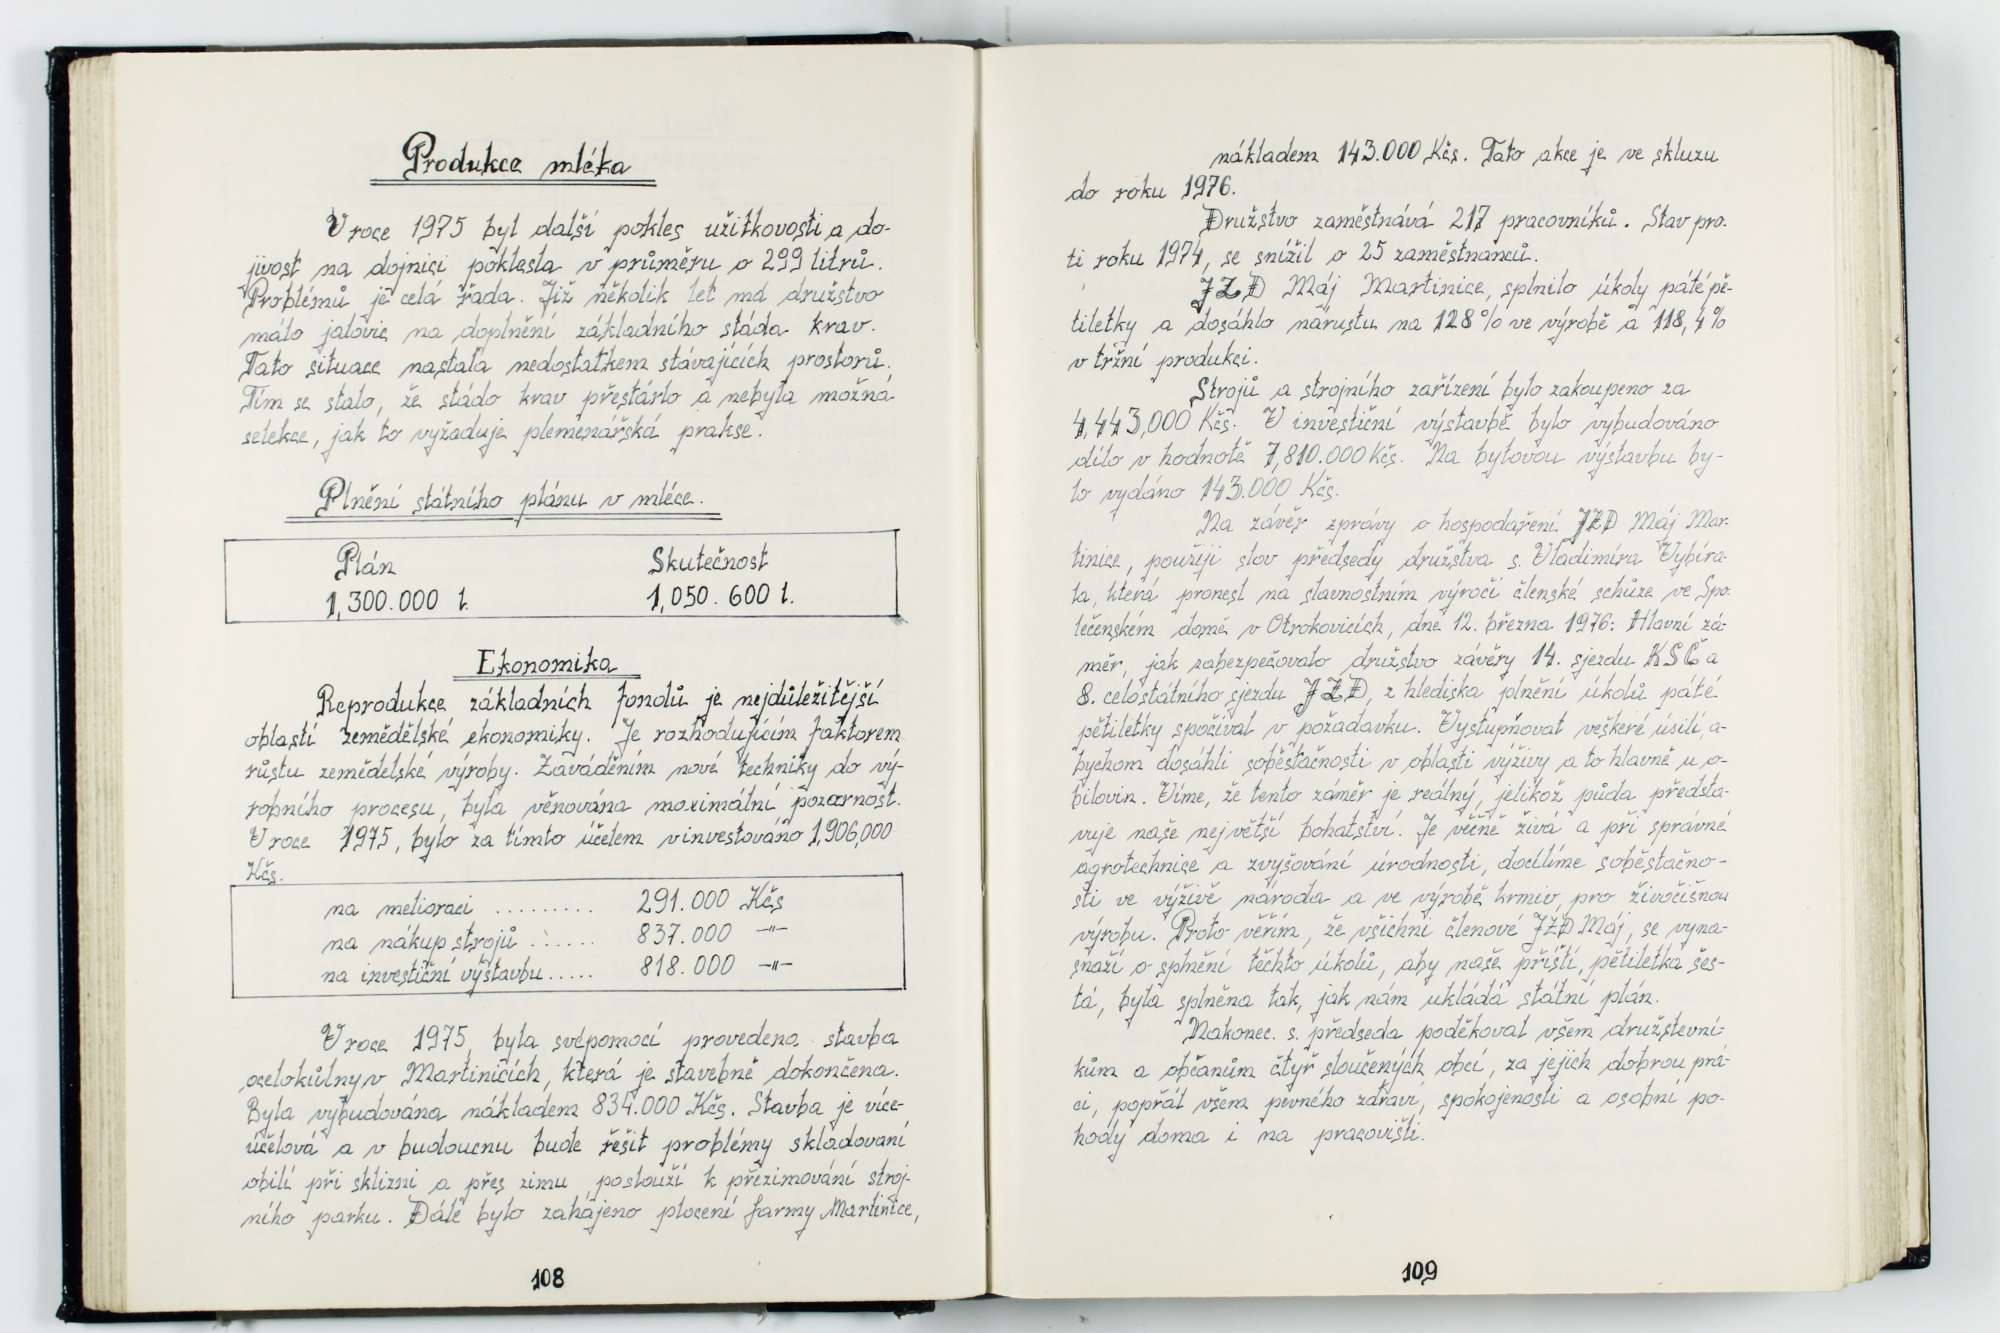 Produkce mléka
V roce 1975 byl další pokles užitkovosti a do-
jivost na dojnici poklesla v průměru o 299 litrů.
Problémů je celá řada. Již několik let má družstvo
málo jalovic na doplnění základního stáda krav.
Tato situace nastala nedostatkem stávajících prostorů.
Tím se stalo, že stádo krav přestárlo a nebyla možná
selekce, jak to vyžaduje plemenářská prakse.
Plnění státního plánu v mléce.
Plán Skutečnost
1,300.000 l. 1,050.600 l.
Ekonomika
Reprodukce základních fondů je nejdůležitější
oblastí zemědělské ekonomiky. Je rozhodujícím faktorem
růstu zemědelské výroby. Zaváděním nové techniky do vý-
robního procesu, byla věnována maximální pozornost.
V roce 1975, bylo za tímto účelem vinvestováno 1,906,000
Kčs.
na melioraci ......... 291.000 Kčs
na nákup strojů ...... 837.000 -"-
na investiční výstavbu ..... 818.000 -"-
V roce 1975, byla svépomocí provedena stavba
ocelokůlny v Martinicích, která je stavebně dokončena.
Byla vybudována nákladem 834.000 Kčs. Stavba je více-
účelová a v budoucnu bude řešit problémy skladování
obilí při sklizni a přes zimu poslouží k přezimování stroj-
ního parku. Dále bylo zahájeno plocení farmy Martinice,
108
nákladem 143.000 Kčs. Tato akce je ve skluzu
do roku 1976.
Družstvo zaměstnává 217 pracovníků. Stav pro-
ti roku 1974, se snížil o 25 zaměstnanců.
JZD Máj Martinice, splnilo úkoly páté pě-
tiletky a dosáhlo nárustu na 128 % ve výrobě a 118,4 %
v tržní produkci.
Strojů a strojního zařízení bylo zakoupeno za
4,443,000 Kčs. V investiční výstavbě bylo vybudováno
dílo v hodnotě 7,810.000 Kčs. Na bytovou výstavbu by-
lo vydáno 143.000 Kčs.
Na závěr zprávy o hospodaření JZD Máj Mar-
tinice, použiji slov předsedy družstva s. Vladimíra Vybíra-
la, která pronesl na slavnostním výročí členské schůze ve Spo-
lečenském domě v Otrokovicích, dne 12. března 1976: Hlavní zá-
měr, jak zabezpečovalo družstvo závěry 14. sjezdu KSČ a
8. celostátního sjezdu JZD, z hlediska plnění úkolů páté
pětiletky spočíval v požadavku. Vystupňovat veškeré úsilí, a-
bychom dosáhli soběstačnosti v oblasti výživy a to hlavně u o-
bilovin. Víme, že tento záměr je reálný, jelikož půda předsta-
vuje naše největší bohatství. Je věčně živá a při správné
agrotechnice a zvyšování úrodnosti, docílíme soběstačno-
sti ve výživě národa a ve výrobě krmiv, pro živočišnou
výrobu. Proto věřím, že všichni členové JZD Máj, se vyna-
snaží o splnění těchto úkolů, aby naše příští, pětiletka šes-
tá, byla splněna tak, jak nám ukládá státní plán.
Nakonec. s. předseda poděkoval všem družstevní-
kům a občanům čtyř sloučených obcí, za jejich dobrou prá-
ci, popřál všem pevného zdraví, spokojenosti a osobní po-
hody doma i na pracovišti.
109